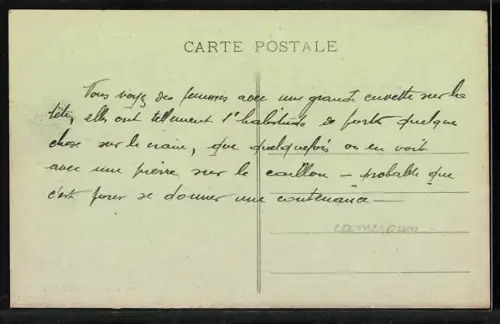 CARTE POSTALE
Vous voyez des femmes avec une grande cuvette sur la
tête, elles ont tellement l'habitude de porter quelque
chose sur le crâne, que quelquefois on en voit
avec une pierre sur le caillou – probable que
c'est pour se donner une contenance –
cameroun